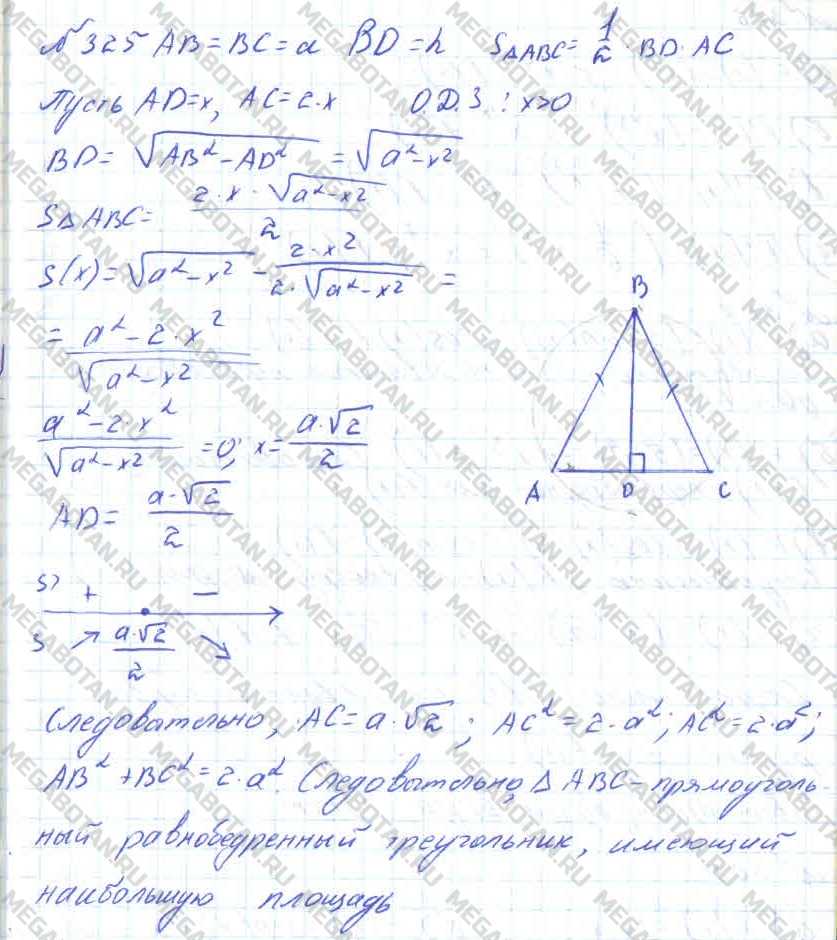 № 325 AB = BC = a BD = h S△ABC = 1/2 · BD · AC
Пусть AD = x, AC = 2·x О.D.З.: x>0
BD = √(AB² − AD²) = √(a² − x²)
S△ABC = (2·x·√(a² − x²))/2
S'(x) = √(a² − x²) − (2·x²)/(2·√(a² − x²)) =
= (a² − 2·x²)/√(a² − x²)
(a² − 2·x²)/√(a² − x²) = 0; x = (a·√2)/2
AD = (a·√2)/2
S' + −
S ↗ (a·√2)/2 ↘
B
A D C
Следовательно, AC = a·√2; AC² = 2·a²; AC² = 2·a²;
AB² + BC² = 2·a². Следовательно, △ABC – прямоуголь-
ный равнобедренный треугольник, имеющий
наибольшую площадь
MEGABOTAN.RU